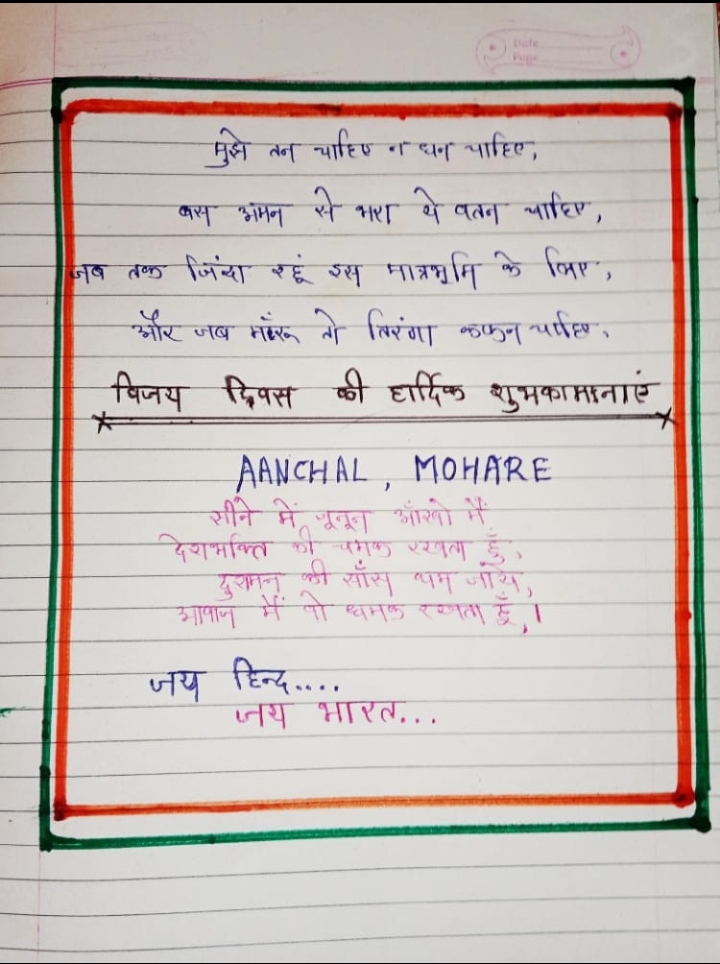 Date
Page
मुझे तन चाहिए न धन चाहिए,
बस अमन से भरा ये वतन चाहिए,
जब तक जिंदा रहूं इस मात्रभूमि के लिए,
और जब मरूं तो तिरंगा कफन चाहिए,
विजय दिवस की हार्दिक शुभकामनाएं
AANCHAL, MOHARE
सीने में जूनून आँखो में
देशभक्ति की चमक रखता हूँ,
दुशमन की साँस थम जाये,
आवाज में वो धमक रखता हूँ,।
जय हिन्द....
जय भारत...